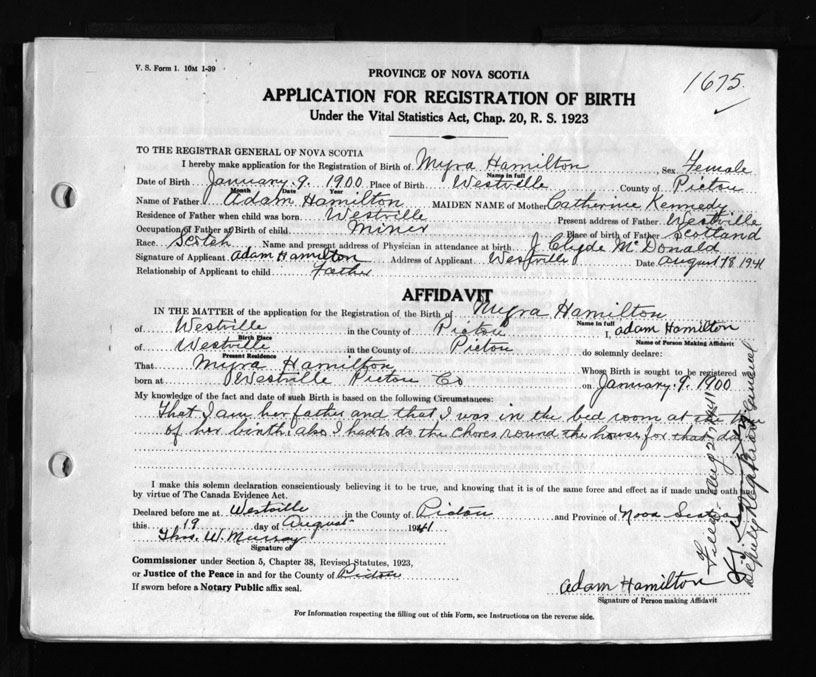 V. S. Form 1. 10M 1-39
1675
PROVINCE OF NOVA SCOTIA
APPLICATION FOR REGISTRATION OF BIRTH
Under the Vital Statistics Act, Chap. 20, R. S. 1923
TO THE REGISTRAR GENERAL OF NOVA SCOTIA
I hereby make application for the Registration of Birth of Myra Hamilton Sex Female
Name in full
Date of Birth January. 9. 1900 Place of Birth Westville County of Pictou
Month Date Year
Name of Father Adam Hamilton MAIDEN NAME of Mother Catherine Kennedy
Residence of Father when child was born Westville Present address of Father Westville
Occupation of Father at Birth of child Miner Place of birth of Father Scotland
Race Scotch Name and present address of Physician in attendance at birth J Clyde McDonald
Signature of Applicant Adam Hamilton Address of Applicant Westville Date August 18 1941
Relationship of Applicant to child Father
AFFIDAVIT
IN THE MATTER of the application for the Registration of the Birth of Myra Hamilton
Name in full
of Westville in the County of Pictou I, Adam Hamilton
Birth Place Name of Person Making Affidavit
of Westville in the County of Pictou do solemnly declare:
Present Residence
That Myra Hamilton Whose Birth is sought to be registered was
born at Westville Pictou Co on January. 9. 1900
My knowledge of the fact and date of such Birth is based on the following Circumstances:
That I am her father and that I was in the bed room at the time
of her birth, also I had to do the chores round the house for that day
I make this solemn declaration conscientiously believing it to be true, and knowing that it is of the same force and effect as if made under oath and
by virtue of The Canada Evidence Act.
Declared before me at Westville in the County of Pictou and Province of Nova Scotia
this 19 day of August 1941
Thos. W. Murray
Signature of
Commissioner under Section 5, Chapter 38, Revised Statutes, 1923,
or Justice of the Peace in and for the County of Pictou
If sworn before a Notary Public affix seal.
Adam Hamilton
Signature of Person making Affidavit
For Information respecting the filling out of this Form, see Instructions on the reverse side.
Filed Aug 27 1941
Deputy Registrar General